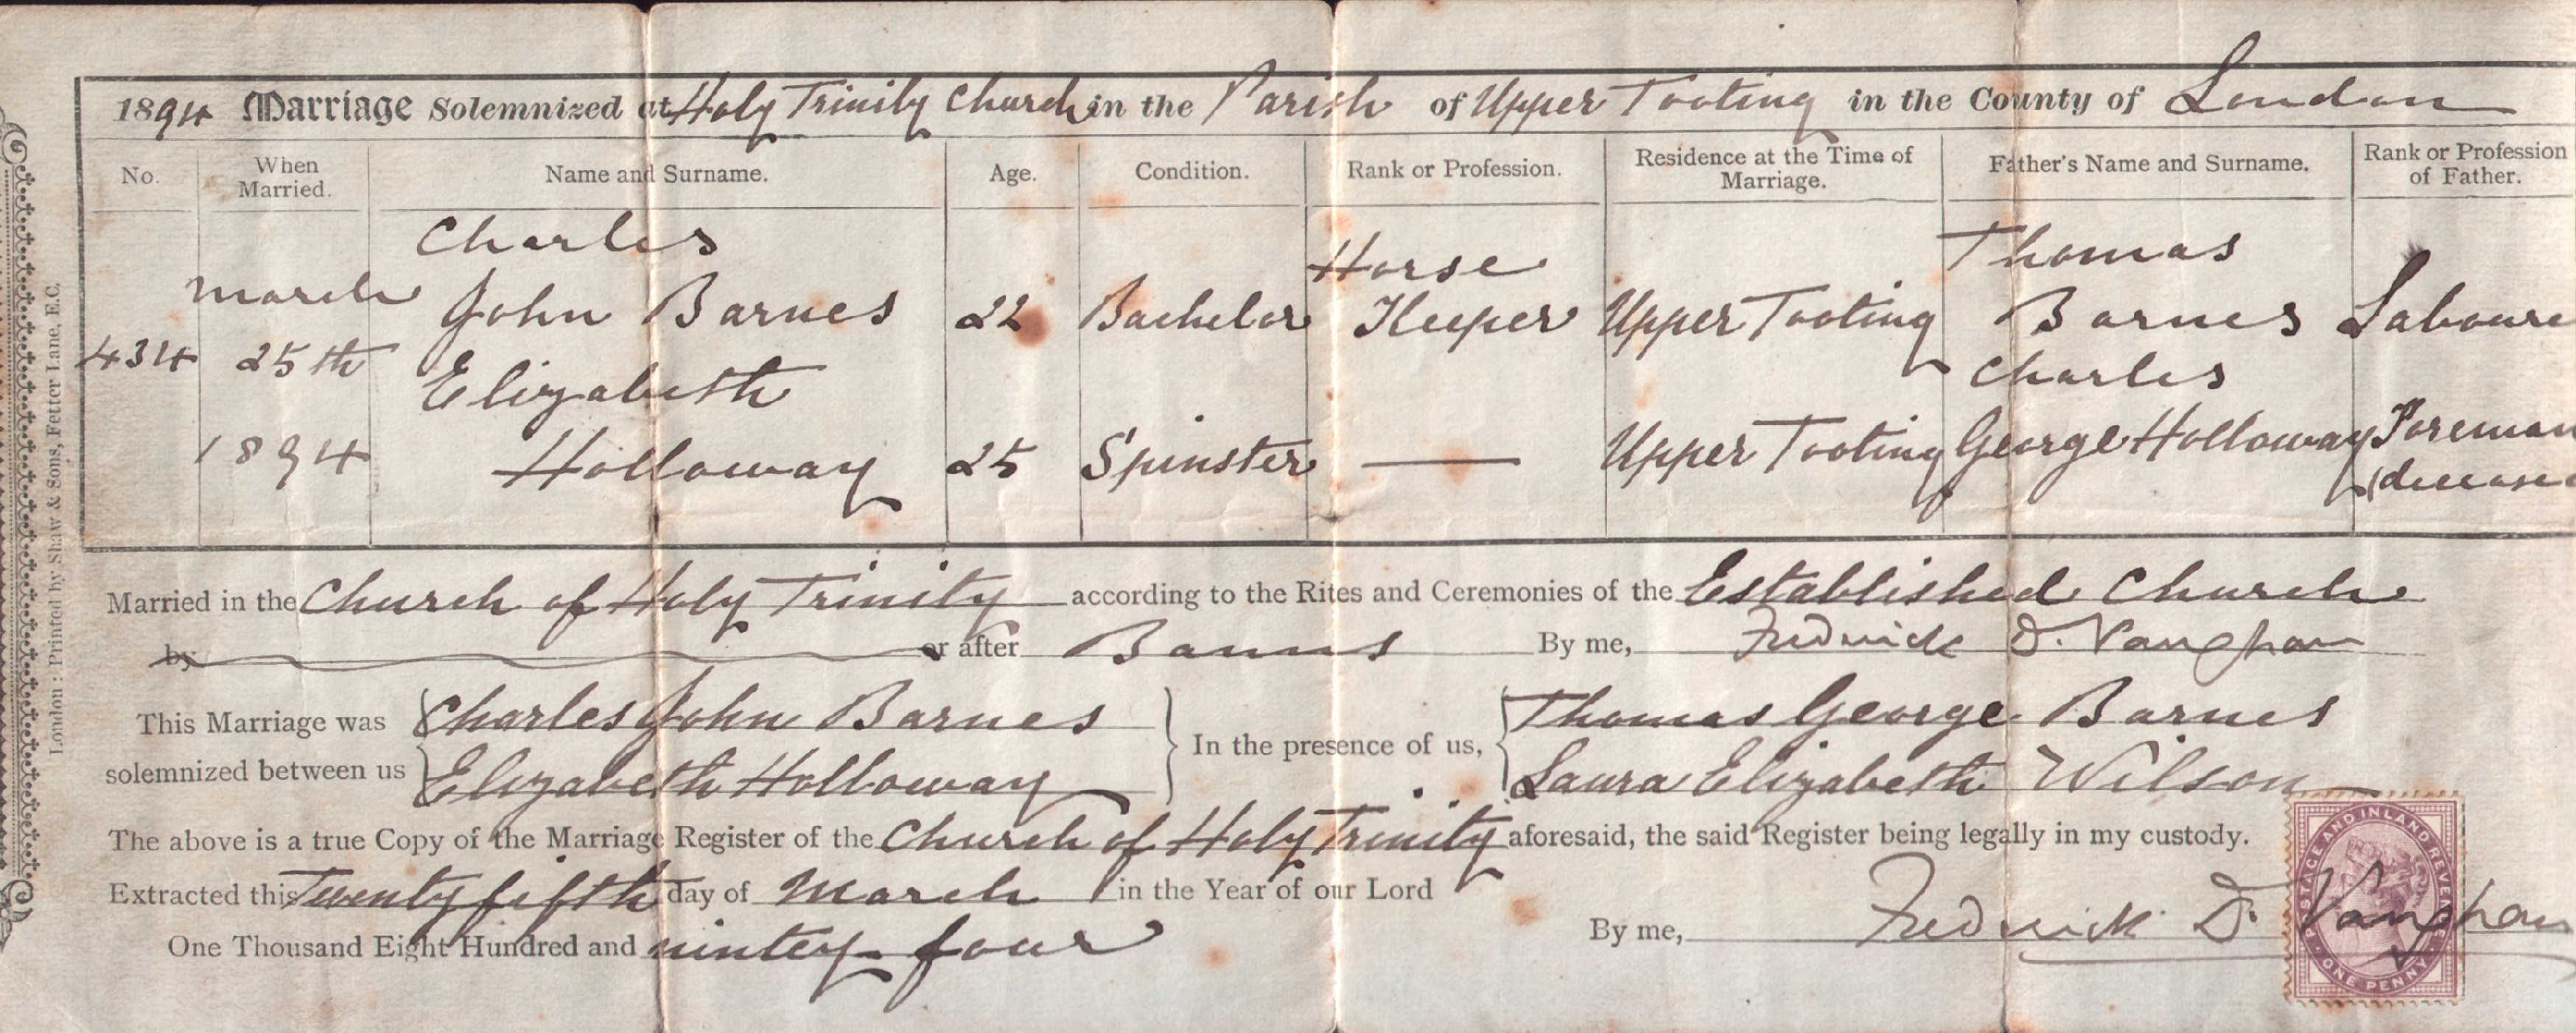 1894 Marriage Solemnized at Holy Trinity Church in the Parish of Upper Tooting in the County of London
No. When Married. Name and Surname. Age. Condition. Rank or Profession. Residence at the Time of Marriage. Father's Name and Surname. Rank or Profession of Father.
434 March 25th 1894 Charles John Barnes 22 Bachelor Horse Keeper Upper Tooting Thomas Barnes Laboure
Elizabeth Holloway 25 Spinster — Upper Tooting Charles George Holloway Foreman (decease
Married in the Church of Holy Trinity according to the Rites and Ceremonies of the Established Church
by or after Banns By me, Fredrick D. Vaughan
This Marriage was solemnized between us Charles John Barnes Elizabeth Holloway In the presence of us, Thomas George Barnes Laura Elizabeth Wilson
The above is a true Copy of the Marriage Register of the Church of Holy Trinity aforesaid, the said Register being legally in my custody.
Extracted this Twenty fifth day of March in the Year of our Lord
One Thousand Eight Hundred and nintey four By me, Fredrick D. Vaughan
POSTAGE AND INLAND REVENUE
ONE PENNY
London: Printed by Shaw & Sons, Fetter Lane, E.C.